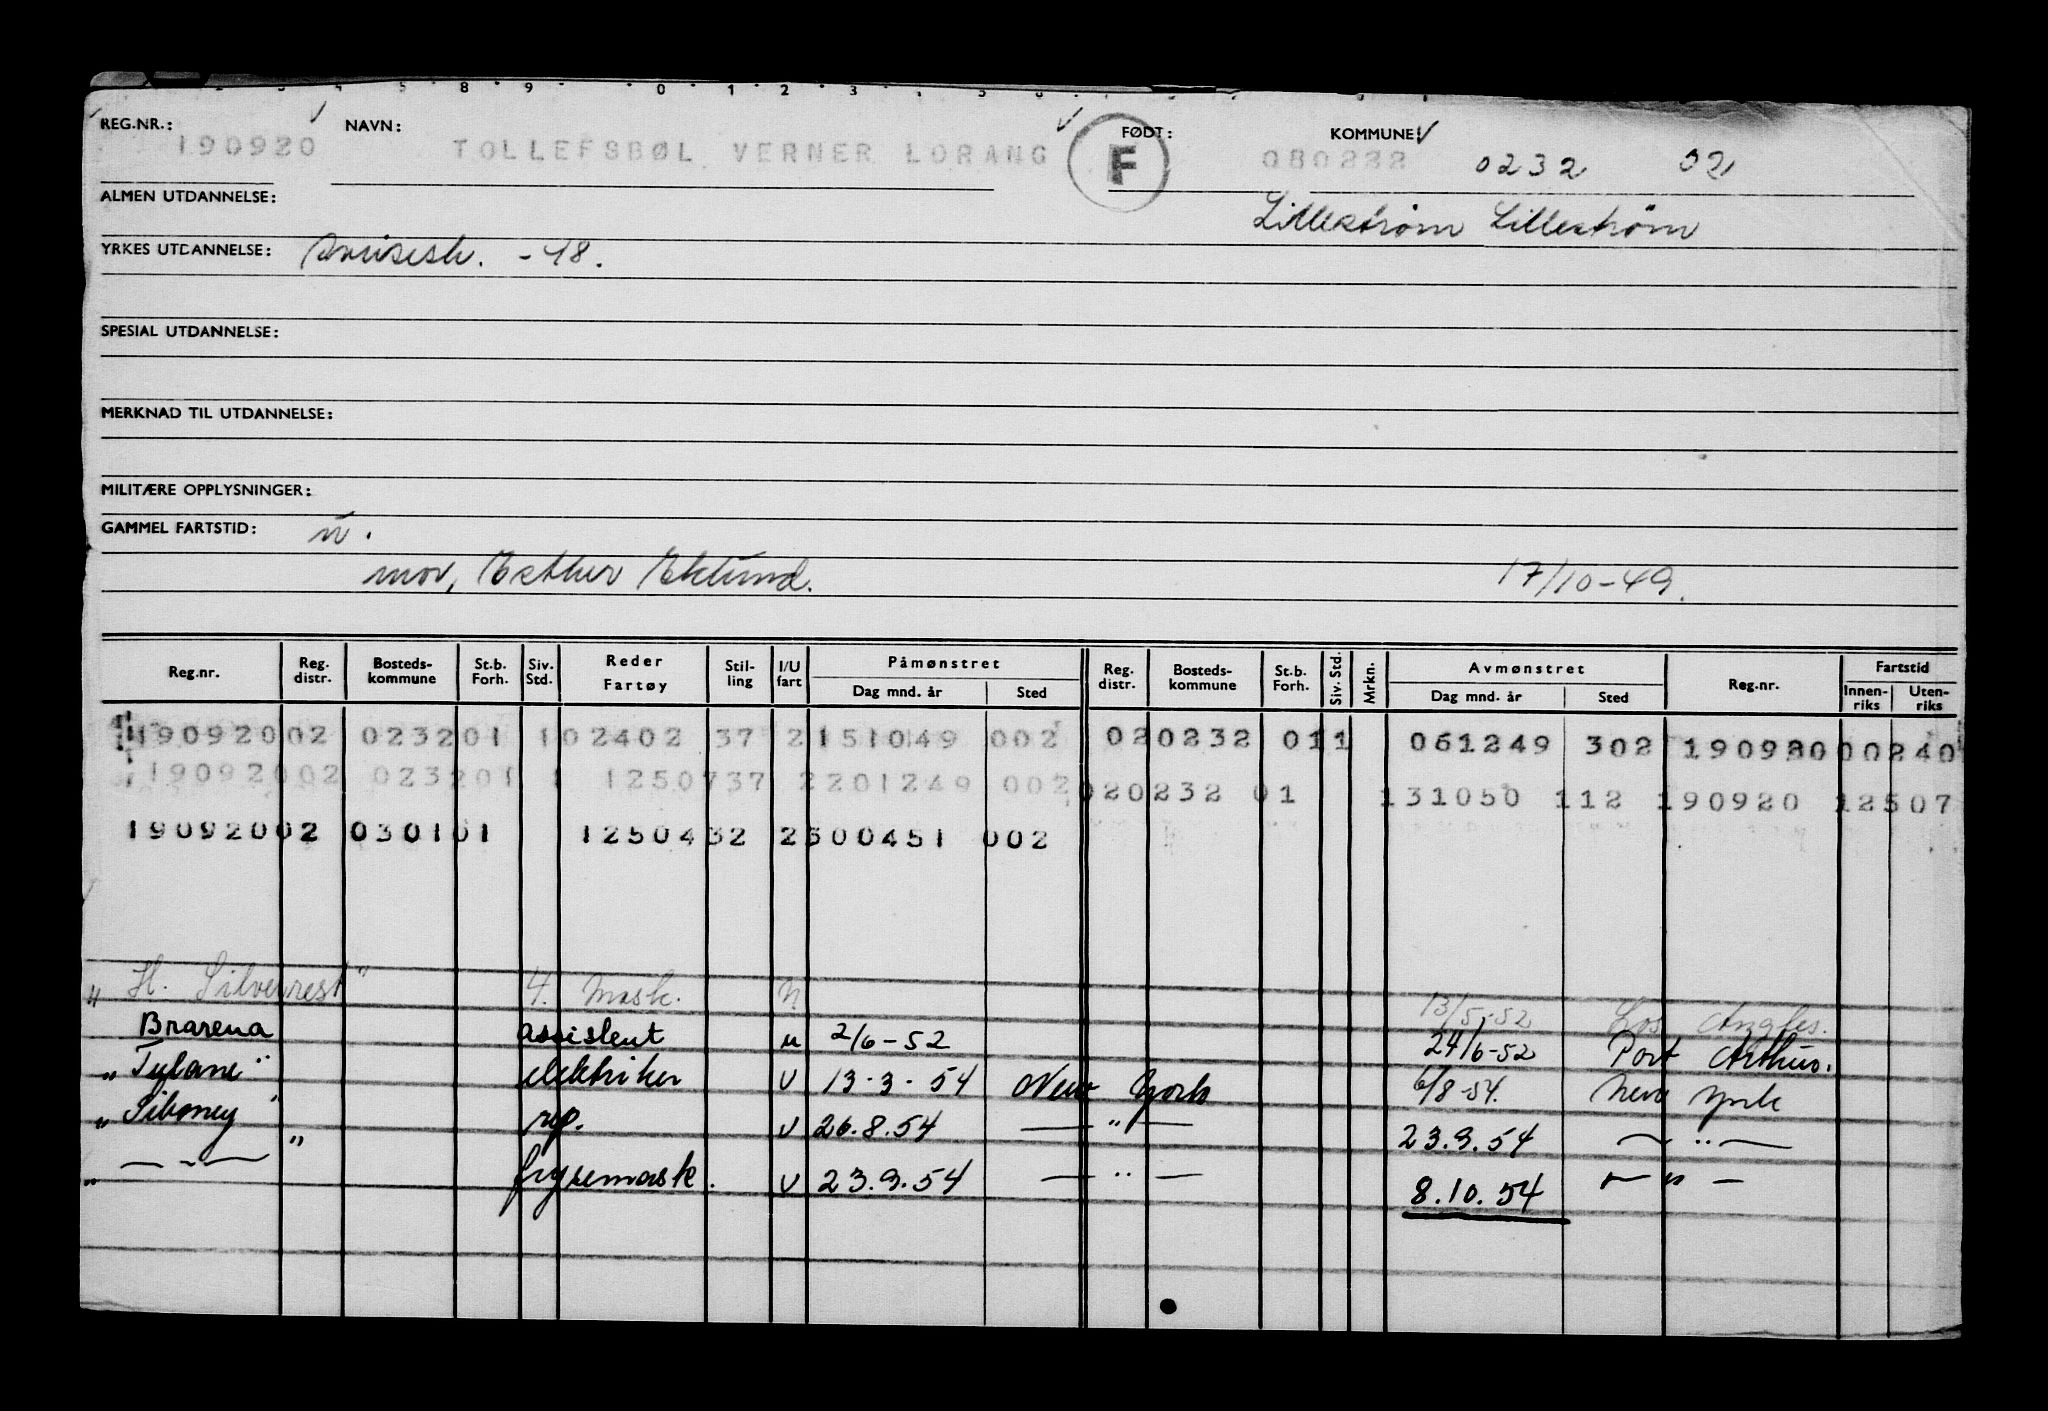 REG.NR.: 190920 NAVN: TOLLEFSBØL VERNER LORANG F FØDT: 080232 KOMMUNE: 0232 02
ALMEN UTDANNELSE: Lillestrøm Lillestrøm
YRKES UTDANNELSE: -48.
SPESIAL UTDANNELSE:
MERKNAD TIL UTDANNELSE:
MILITÆRE OPPLYSNINGER:
GAMMEL FARTSTID:
mor, Esther Eklund. 17/10-49.
Reg.nr. Reg. distr. Bosteds-kommune St.b. Forh. Siv. Std. Reder Fartøy Stil-ling I/U fart Påmønstret Dag mnd. år Sted Reg. distr. Bosteds-kommune St.b. Forh. Siv. Std. Mrkn. Avmønstret Dag mnd. år Sted Reg.nr. Fartstid Innen-riks Uten-riks
190920 02 0232 01 1 02402 37 2 151049 002 02 0232 01 1 061249 302 190920 00240
190920 02 0232 01 1 12507 37 2 201249 002 02 0232 01 131050 112 190920 12507
190920 02 0301 01 12504 32 2 300451 002
" H. Silvercrest" 4. mask. 13/5-52 Los Angles.
Brarena assistent u 2/6-52 24/6-52 Port Arthur.
"Tulane" elektriker U 13-3-54 New York 6/8-54. New York
"Siboney" rep. U 26.8.54 — " — 23.9.54 — " —
" — " — " frysemask. U 23.9.54 — " — 8.10.54 — " —